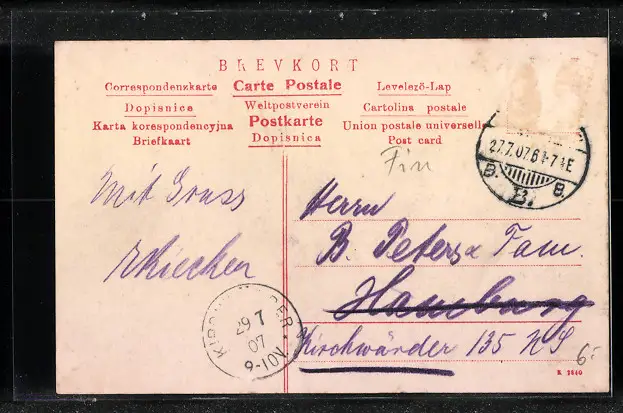 BREVKORT
Correspondenzkarte Carte Postale Levelező-Lap
Dopisnica Weltpostverein Cartolina postale
Karta korespondencyjna Postkarte Union postale universelle
Briefkaart Dopisnica Post card
Fin
27.7.07.6½-7½E
B. B.
Mit Gruss
Herrn
B. Peters & Fam.
Hamburg
Kirchwärder 135 NS
29 7
07
9-10V.
6.-